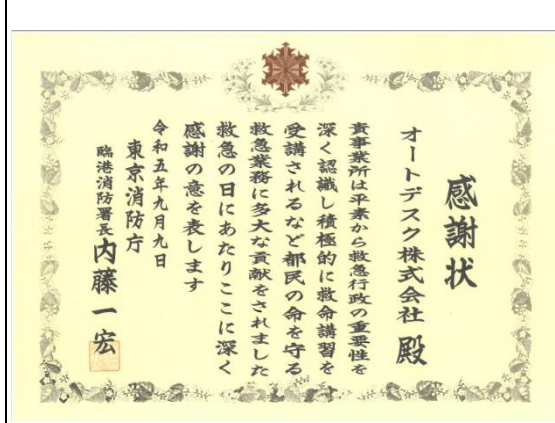 感謝状
オートデスク株式会社 殿
貴事業所は平素から救急行政の重要性を
深く認識し積極的に救命講習を
受講されるなど都民の命を守る
救急業務に多大な貢献をされました
救急の日にあたりここに深く
感謝の意を表します
令和五年九月九日
東京消防庁
臨港消防署長 内藤一宏